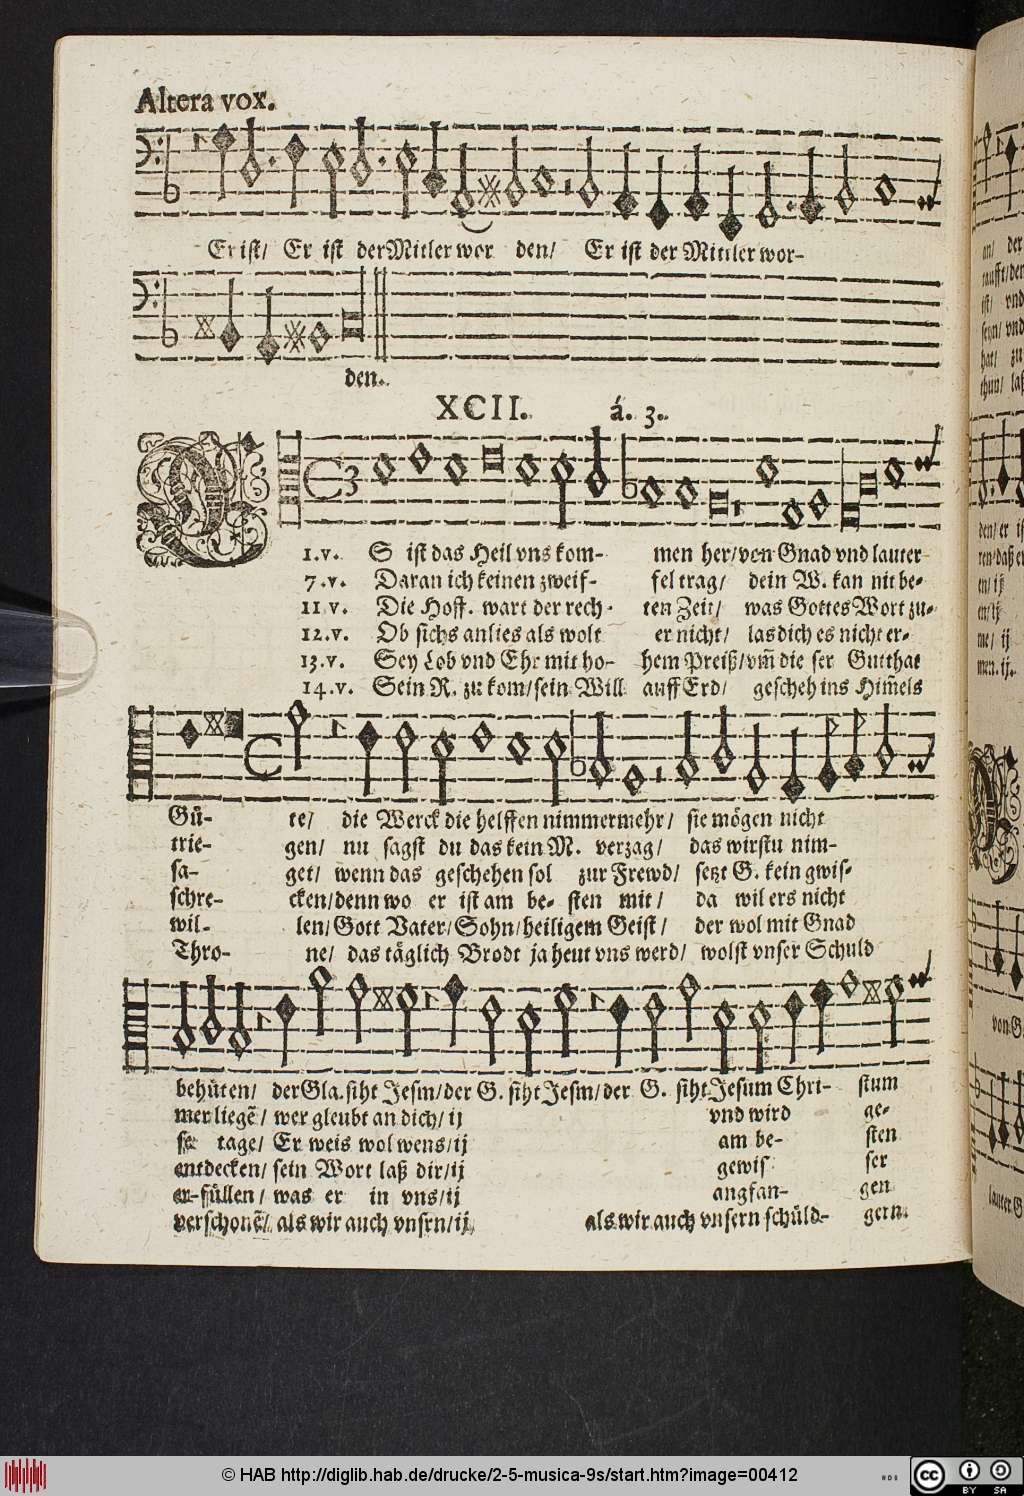 Altera vox.
Er ist/ Er ist der Mitler wor den/ Er ist der Mittler wor-
den.
XCII. á. 3.
1.v. ES ist das Heil vns kom- men her/von Gnad vnd lauter
7.v. Daran ich keinen zweif- fel trag/ dein W. kan nit be-
11.v. Die Hoff. wart der rech- ten Zeit/ was Gottes Wort zu-
12.v. Ob sichs anlies als wolt er nicht/ las dich es nicht er-
13.v. Sey Lob vnd Ehr mit ho- hem Preiß/vm̃ die ser Gutthat
14.v. Sein R. zu kom/sein Will auff Erd/ gescheh ins Him̃els
Gü- te/ die Werck die helffen nimmermehr/ sie mögen nicht
trie- gen/ nu sagst du das kein M. verzag/ das wirstu nim-
sa- get/ wenn das geschehen sol zur Frewd/ setzt G. kein gwis-
schre- cken/denn wo er ist am be- sten mit/ da wil ers nicht
wil- len/Gott Vater/Sohn/heiligem Geist/ der wol mit Gnad
Thro- ne/ das täglich Brodt ja heut vns werd/ wolst vnser Schuld
behüten/ der Gla. siht Jesm/der G. siht Jesm/der G. siht Jesum Chri- stum
mer liegẽ/ wer gleubt an dich/ ij vnd wird ge-
se tage/ Er weis wol wens/ij am be- sten
entdecken/ sein Wort laß dir/ij gewis ser
er-füllen/ was er in vns/ij angfan- gen
verschonẽ/ als wir auch vnsrn/ij als wir auch vnsern schüld- gern.
© HAB http://diglib.hab.de/drucke/2-5-musica-9s/start.htm?image=00412
BY SA